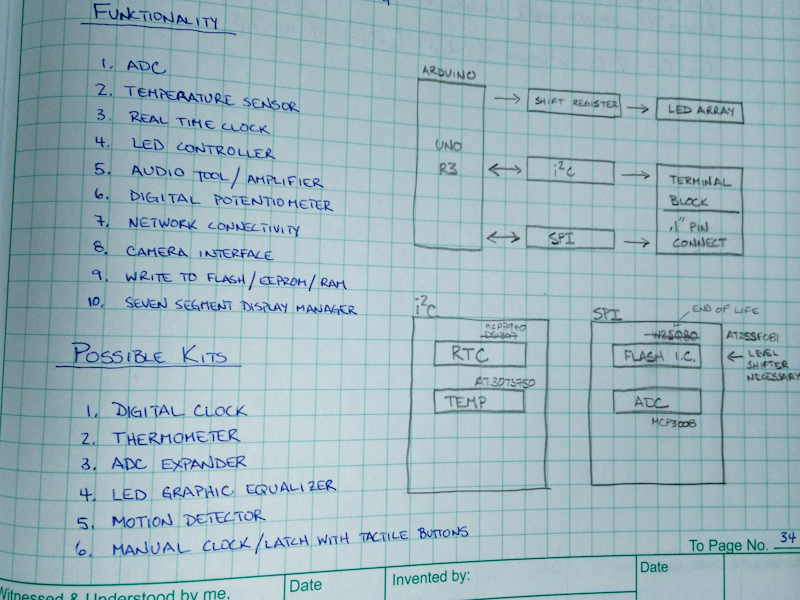 FUNCTIONALITY
1. ADC
2. TEMPERATURE SENSOR
3. REAL TIME CLOCK
4. LED CONTROLLER
5. AUDIO TOOL/AMPLIFIER
6. DIGITAL POTENTIOMETER
7. NETWORK CONNECTIVITY
8. CAMERA INTERFACE
9. WRITE TO FLASH/EEPROM/RAM
10. SEVEN SEGMENT DISPLAY MANAGER
POSSIBLE KITS
1. DIGITAL CLOCK
2. THERMOMETER
3. ADC EXPANDER
4. LED GRAPHIC EQUALIZER
5. MOTION DETECTOR
6. MANUAL CLOCK/LATCH WITH TACTILE BUTTONS
ARDUINO
UNO
R3
SHIFT REGISTER
LED ARRAY
i²C
TERMINAL
BLOCK
SPI
.1" PIN
CONNECT
i²C
MCP7940
DS1307
RTC
AT30TS750
TEMP
SPI
END OF LIFE
W25Q80
AT25SF081
FLASH I.C.
LEVEL
SHIFTER
NECESSARY
ADC
MCP3008
To Page No. 34
Witnessed & Understood by me,
Date
Invented by:
Date